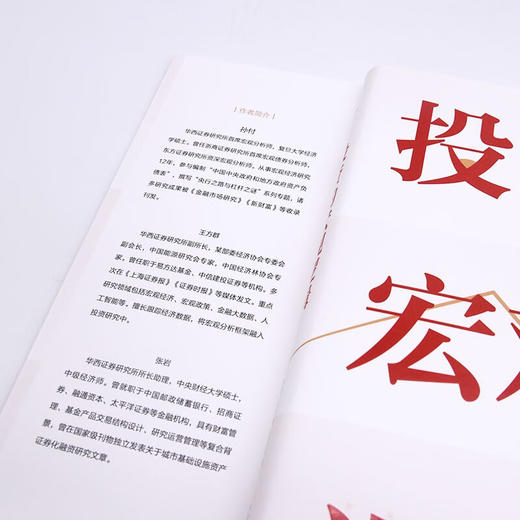 |作者简介|
孙付
华西证券研究所首席宏观分析师，复旦大学经济
学硕士，曾任浙商证券研究所首席宏观债券分析师，
东方证券研究所资深宏观分析师，从事宏观经济研究
12年，参与编制“中国中央政府和地方政府资产负
债表”，撰写“央行之路与杠杆之谜”系列专题，诸
多研究成果被《金融市场研究》《新财富》等收录
刊发。
王方群
华西证券研究所副所长，某部委经济协会专委会
副会长，中国能源研究会专家，中国经济林协会专
家。曾任职于易方达基金、中信建投证券等机构。多
次在《上海证券报》《证券时报》等媒体发文。重点
研究领域包括宏观经济、宏观政策、金融大数据、人
工智能等。擅长跟踪经济数据，将宏观分析框架融入
投资研究中。
张岩
华西证券研究所所长助理，中央财经大学硕士，
中级经济师。曾就职于中国邮政储蓄银行、招商证
券、融通资本、太平洋证券等金融机构，具有财富管
理、基金产品交易结构设计、研究运营管理等复合背
景，曾在国家级刊物独立发表关于城市基础设施资产
证券化融资研究文章。
投
宏